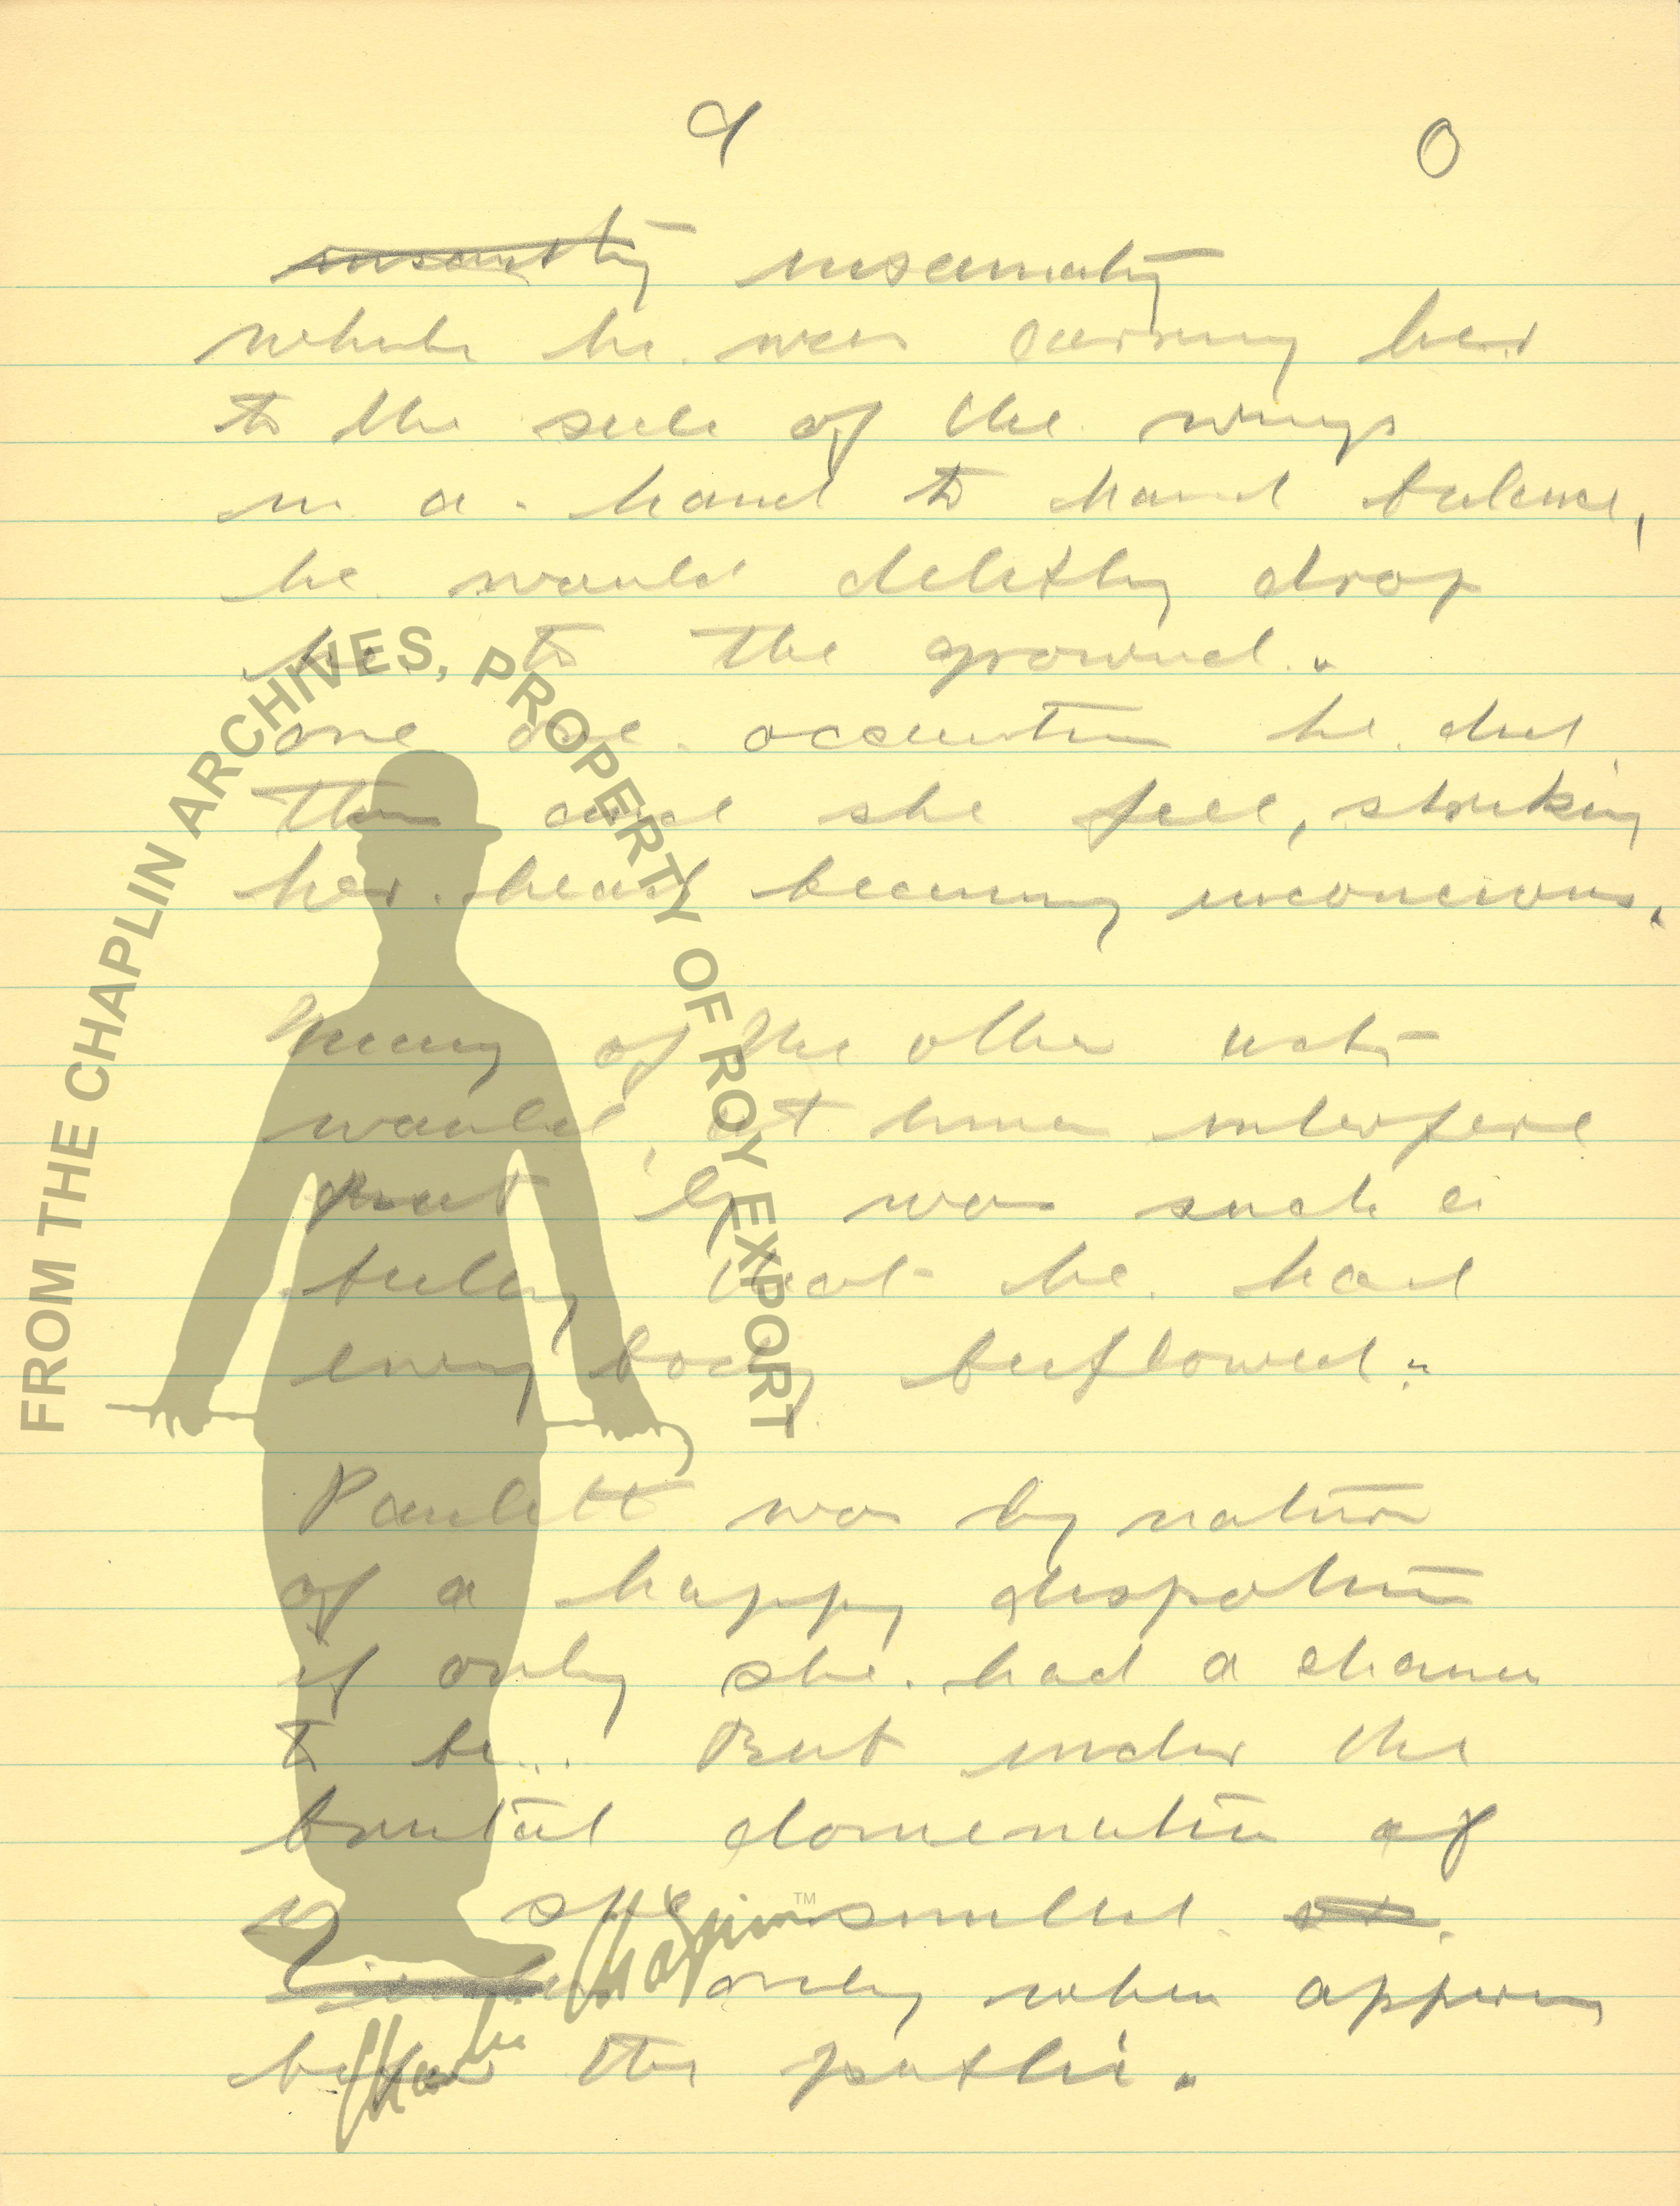 9 0
whule he was carrying her
to the side of the wings
in a hand to hand balance,
he would
drop
her to the ground.
one one occation he did
this and she fell, striking
her head becoming unconcious.
Many of the other acts
would, at times interfere
but Ig was such a
bully that he had
every body buflowed.
Paulett was by nature
of a happy dispotion
if only she had a chance
to be... But under the
brutal domenation of
Ig she smiled
only when appering
before the public.
FROM THE CHAPLIN ARCHIVES, PROPERTY OF ROY EXPORT
Charlie Chaplin™